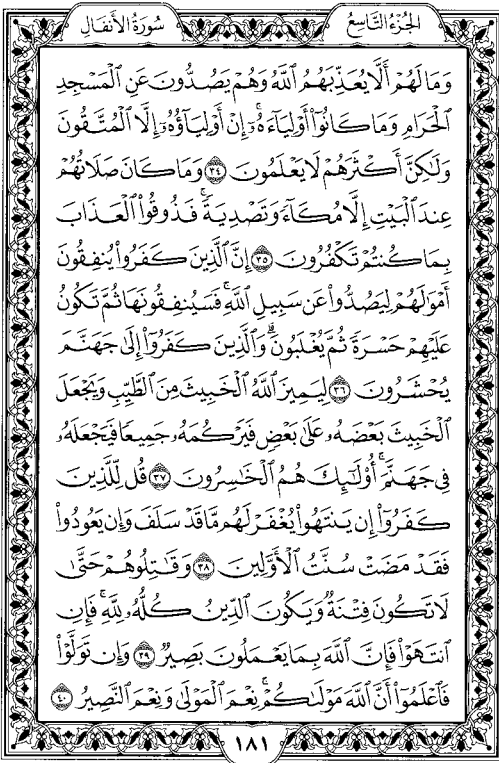 الجُزْءُ التَّاسِعُ
سُورَةُ الأَنفَال
وَمَا لَهُمْ أَلَّا يُعَذِّبَهُمُ ٱللَّهُ وَهُمْ يَصُدُّونَ عَنِ ٱلْمَسْجِدِ
ٱلْحَرَامِ وَمَا كَانُوٓا۟ أَوْلِيَآءَهُۥٓ ۚ إِنْ أَوْلِيَآؤُهُۥٓ إِلَّا ٱلْمُتَّقُونَ
وَلَٰكِنَّ أَكْثَرَهُمْ لَا يَعْلَمُونَ ٣٤ وَمَا كَانَ صَلَاتُهُمْ
عِندَ ٱلْبَيْتِ إِلَّا مُكَآءً وَتَصْدِيَةً ۚ فَذُوقُوا۟ ٱلْعَذَابَ
بِمَا كُنتُمْ تَكْفُرُونَ ٣٥ إِنَّ ٱلَّذِينَ كَفَرُوا۟ يُنفِقُونَ
أَمْوَٰلَهُمْ لِيَصُدُّوا۟ عَن سَبِيلِ ٱللَّهِ ۚ فَسَيُنفِقُونَهَا ثُمَّ تَكُونُ
عَلَيْهِمْ حَسْرَةً ثُمَّ يُغْلَبُونَ ۗ وَٱلَّذِينَ كَفَرُوٓا۟ إِلَىٰ جَهَنَّمَ
يُحْشَرُونَ ٣٦ لِيَمِيزَ ٱللَّهُ ٱلْخَبِيثَ مِنَ ٱلطَّيِّبِ وَيَجْعَلَ
ٱلْخَبِيثَ بَعْضَهُۥ عَلَىٰ بَعْضٍ فَيَرْكُمَهُۥ جَمِيعًا فَيَجْعَلَهُۥ
فِى جَهَنَّمَ ۚ أُو۟لَٰٓئِكَ هُمُ ٱلْخَٰسِرُونَ ٣٧ قُل لِّلَّذِينَ
كَفَرُوٓا۟ إِن يَنتَهُوا۟ يُغْفَرْ لَهُم مَّا قَدْ سَلَفَ وَإِن يَعُودُوا۟
فَقَدْ مَضَتْ سُنَّتُ ٱلْأَوَّلِينَ ٣٨ وَقَٰتِلُوهُمْ حَتَّىٰ
لَا تَكُونَ فِتْنَةٌ وَيَكُونَ ٱلدِّينُ كُلُّهُۥ لِلَّهِ ۚ فَإِنِ
ٱنتَهَوْا۟ فَإِنَّ ٱللَّهَ بِمَا يَعْمَلُونَ بَصِيرٌ ٣٩ وَإِن تَوَلَّوْا۟
فَٱعْلَمُوٓا۟ أَنَّ ٱللَّهَ مَوْلَىٰكُمْ ۚ نِعْمَ ٱلْمَوْلَىٰ وَنِعْمَ ٱلنَّصِيرُ ٤٠
١٨١